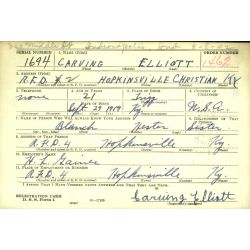 SERIAL NUMBER 1. NAME (Print) ORDER NUMBER
1694 CARVING ELLIOTT 1462
2. ADDRESS (Print)
R.F.D. #2 HOPKINSVILLE CHRISTIAN Ky
3. TELEPHONE 4. AGE IN YEARS 5. PLACE OF BIRTH 6. COUNTRY OF CITIZENSHIP
none 21 Trigg
DATE OF BIRTH
Sept 29 1919 Ky U.S.A.
7. NAME OF PERSON WHO WILL ALWAYS KNOW YOUR ADDRESS 8. RELATIONSHIP OF THAT PERSON
Nester Sister
9. ADDRESS OF THAT PERSON
R.F.D. 4 Hopkinsville Ky
10. EMPLOYER'S NAME
11. PLACE OF EMPLOYMENT OR BUSINESS
R.F.D. 4 Hopkinsville Ky
I AFFIRM THAT I HAVE VERIFIED ABOVE ANSWERS AND THAT THEY ARE TRUE.
REGISTRATION CARD
D. S. S. Form 1
Carving Elliott